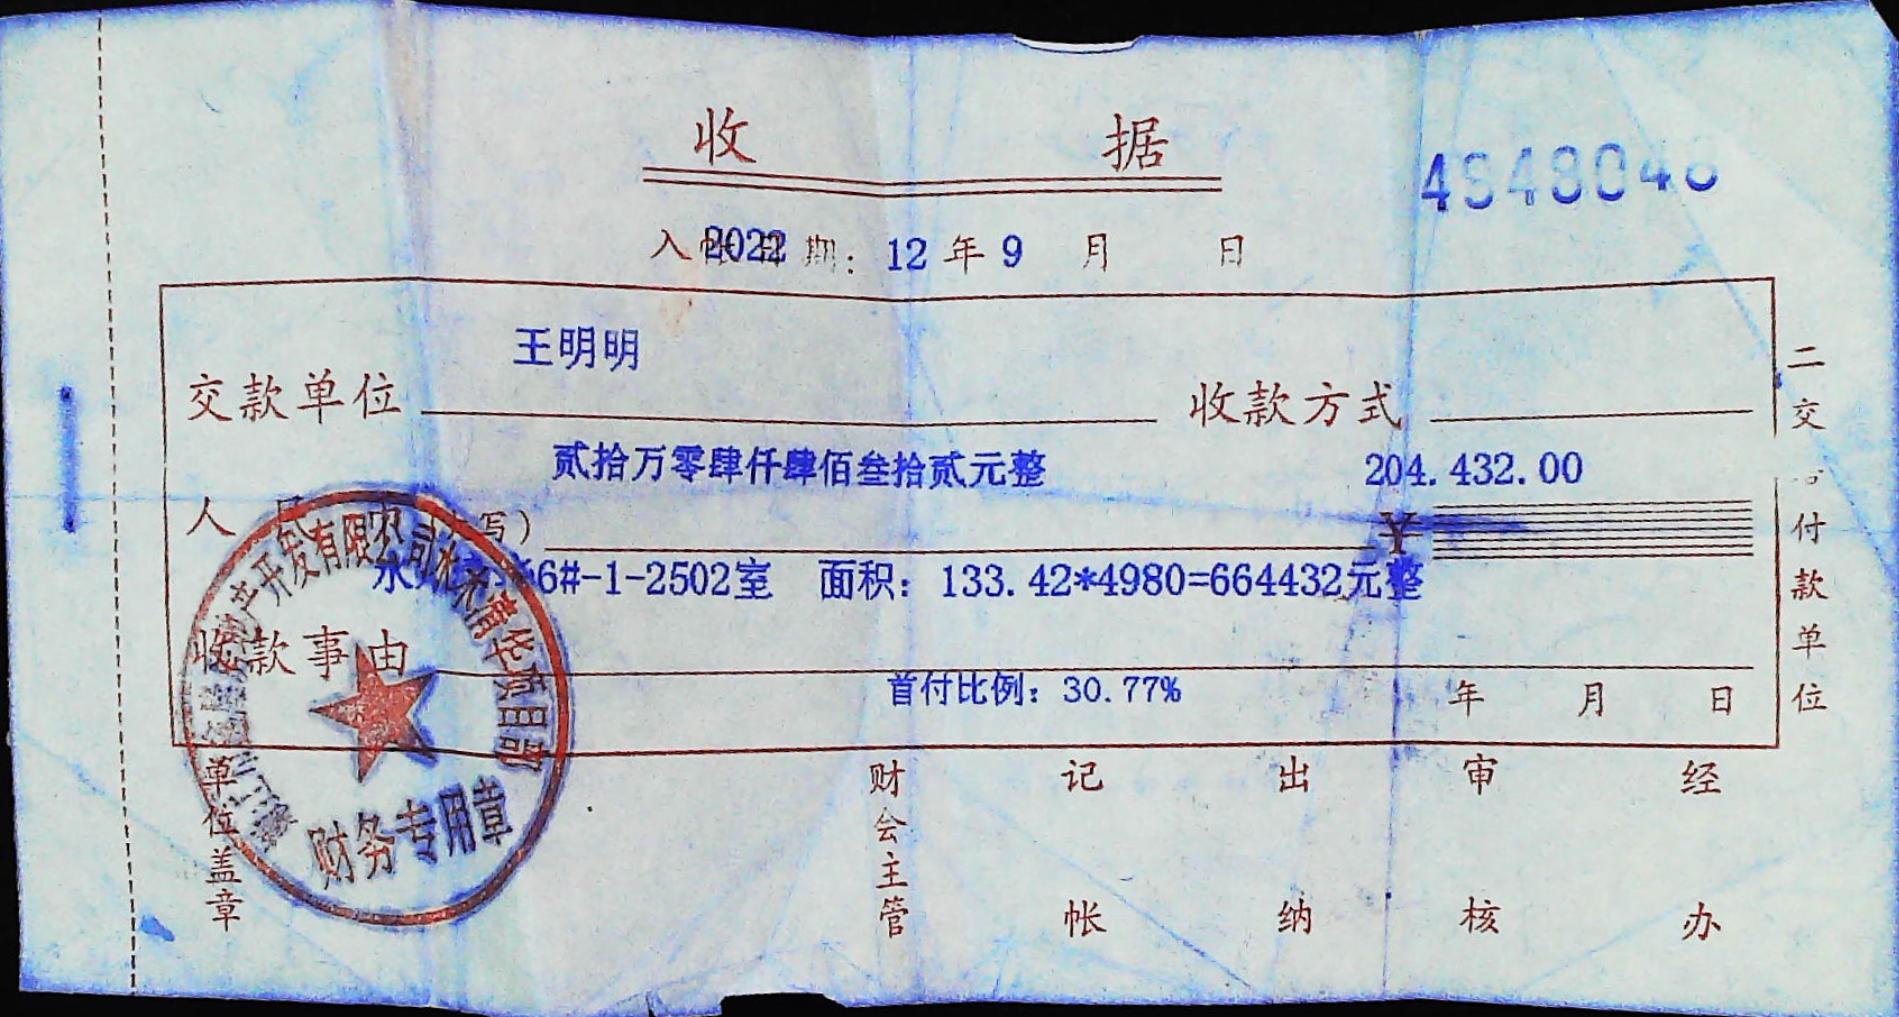 收 据
入帐日期: 2022 12 年 9 月 日
王明明
交款单位 收款方式
贰拾万零肆仟肆佰叁拾贰元整 204.432.00
人 民 写) ¥
6#-1-2502室 面积: 133.42*4980=664432元整
收款事由
首付比例: 30.77% 年 月 日
二 交 付 款 单 位
单位盖章
财会主管
记 帐
出 纳
审 核
经 办
产开发有限公司 清华项目部
财务专用章